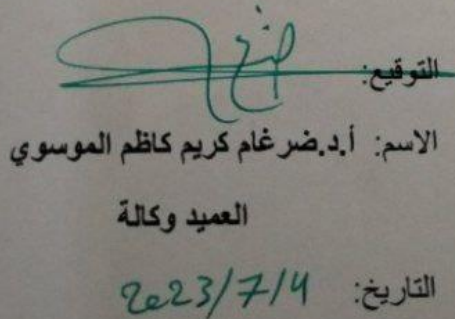 التوقيع:
الاسم: أ.د.ضرغام كريم كاظم الموسوي
العميد وكالة
التاريخ: 2023/7/4